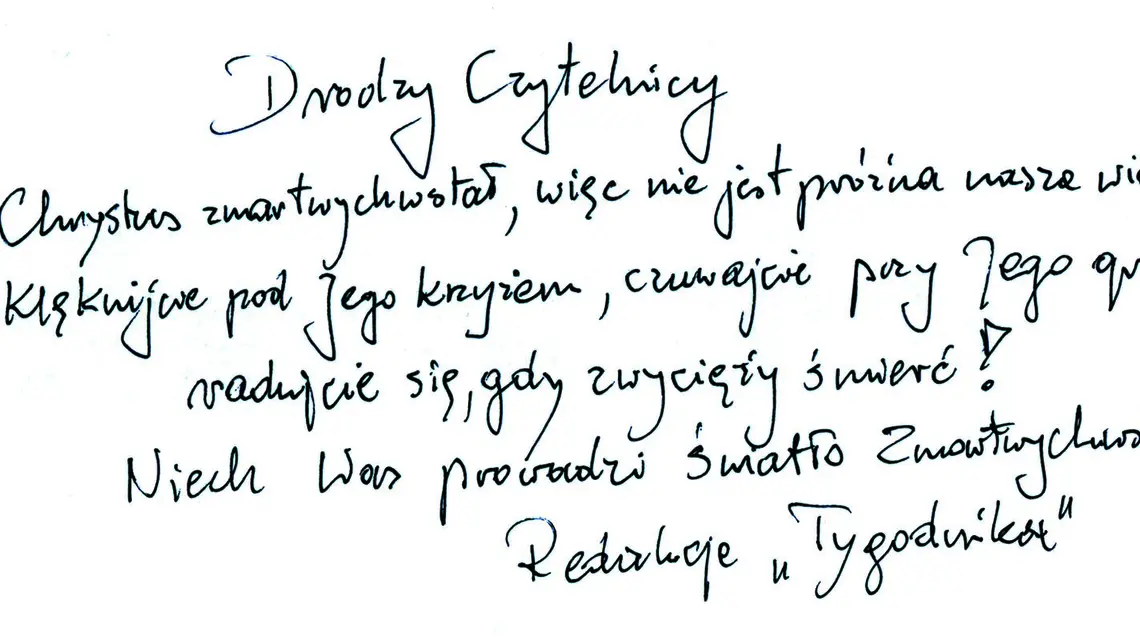 Drodzy Czytelnicy
Chrystus zmartwychwstał, więc nie jest próżna nasza
Klęknijcie pod Jego krzyżem, czuwajcie przy Jego
radujcie się, gdy zwycięży śmierć!
Niech Was prowadzi światło
Redakcja „Tygodnika"